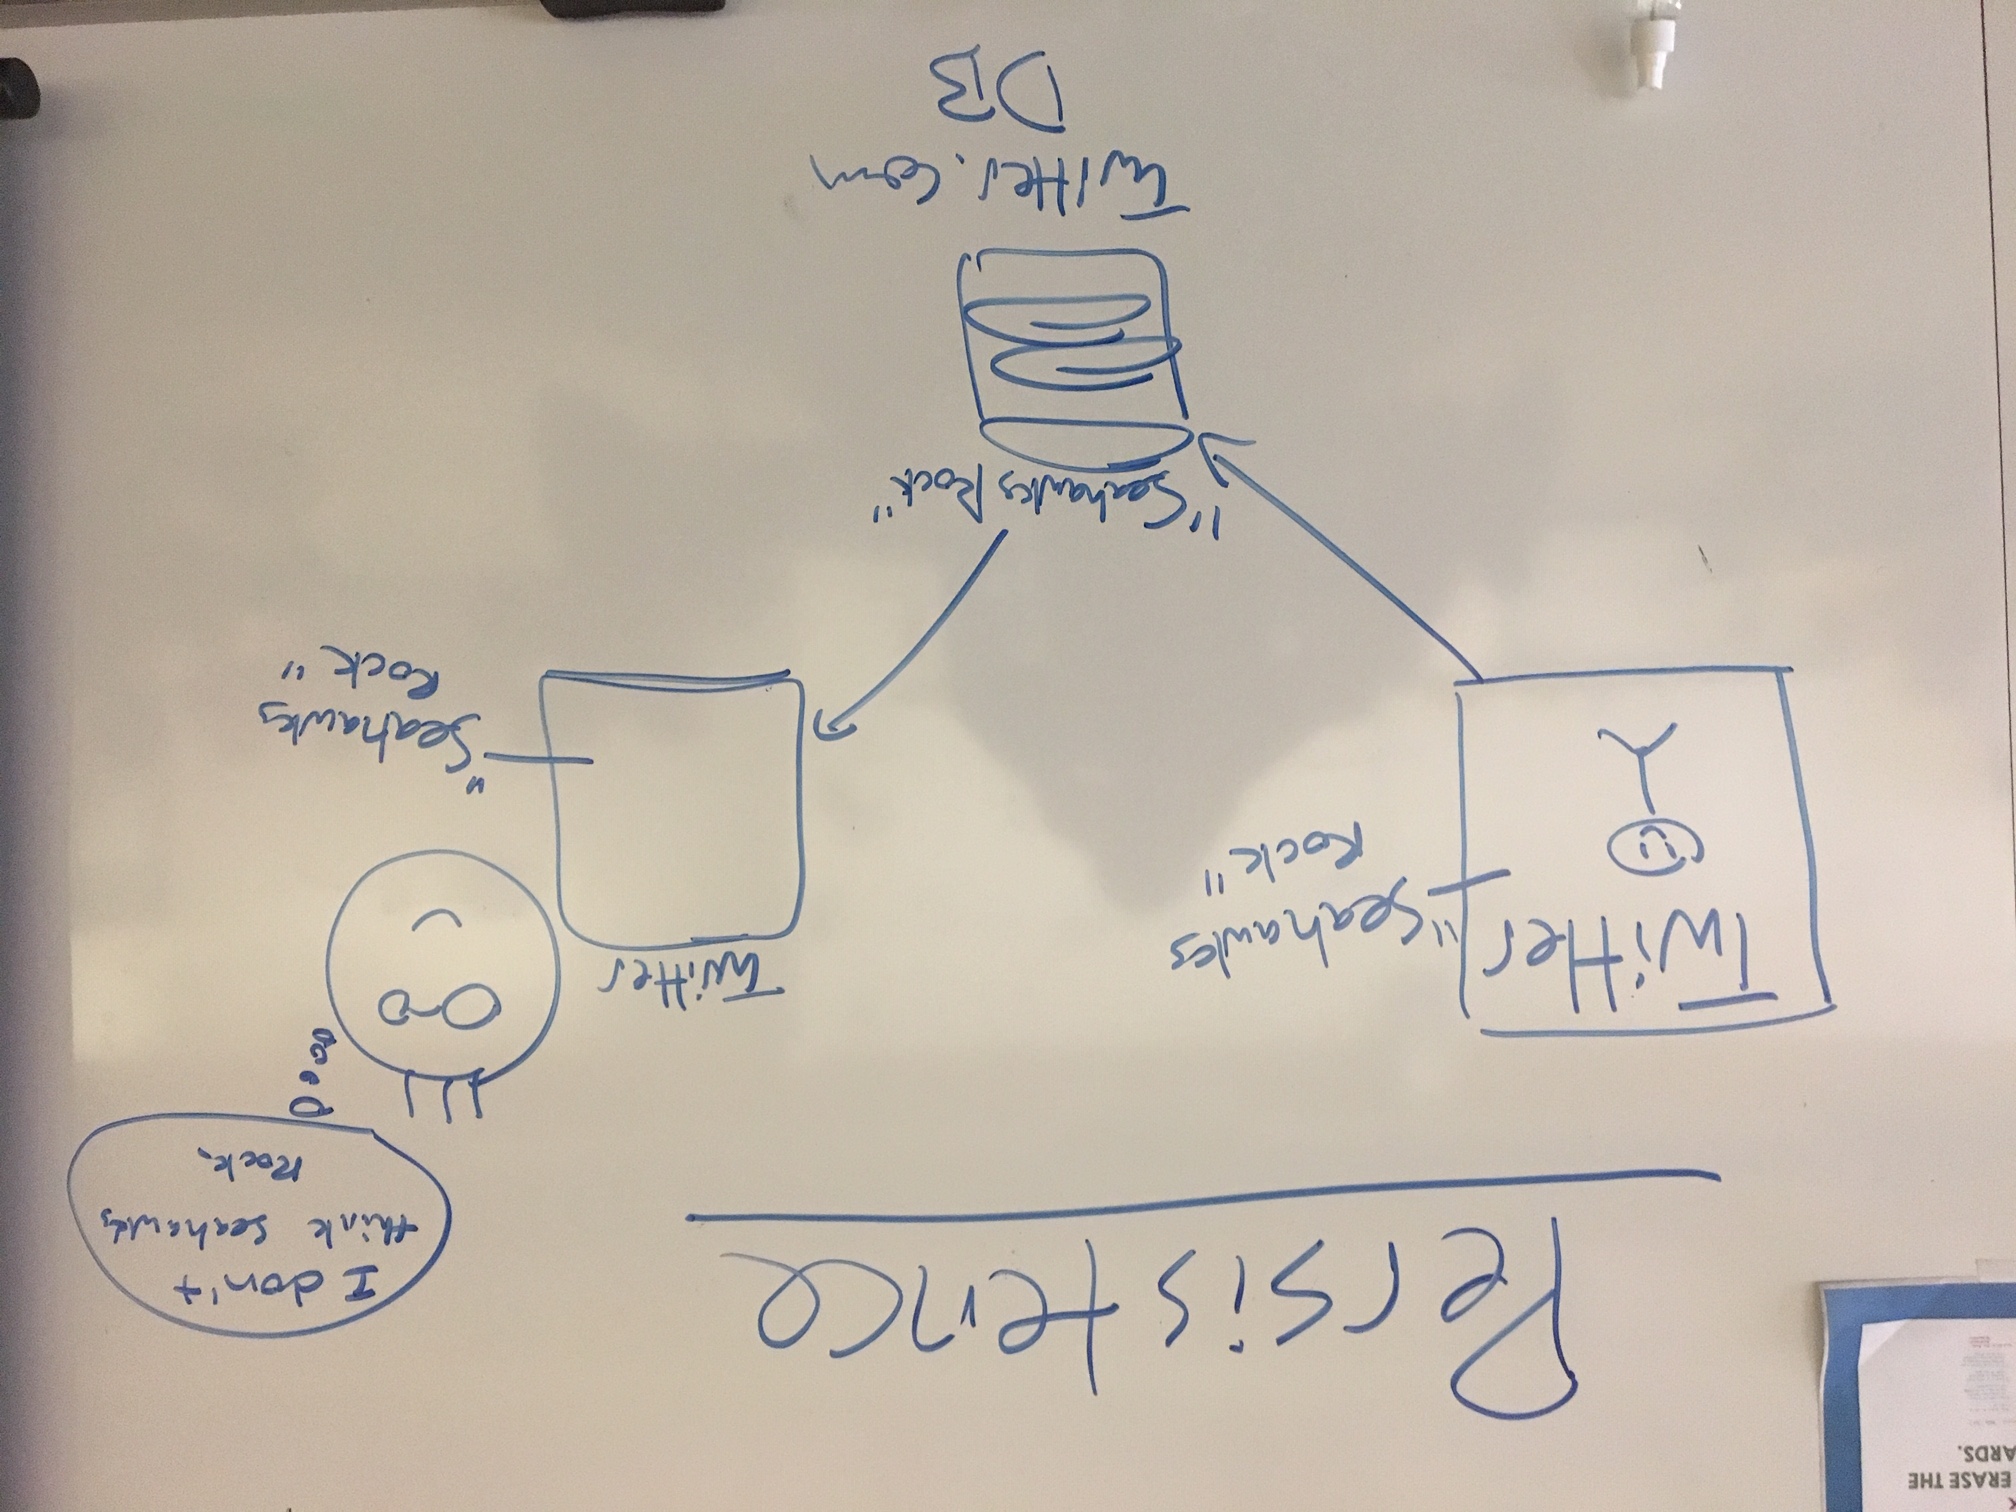 ERASE THE
ARDS.
Persistence
I don't
think Seahawks
Rock.
Twitter
"Seahawks
Rock"
Twitter
"Seahawks
Rock"
"Seahawks Rock"
Twitter.com
DB